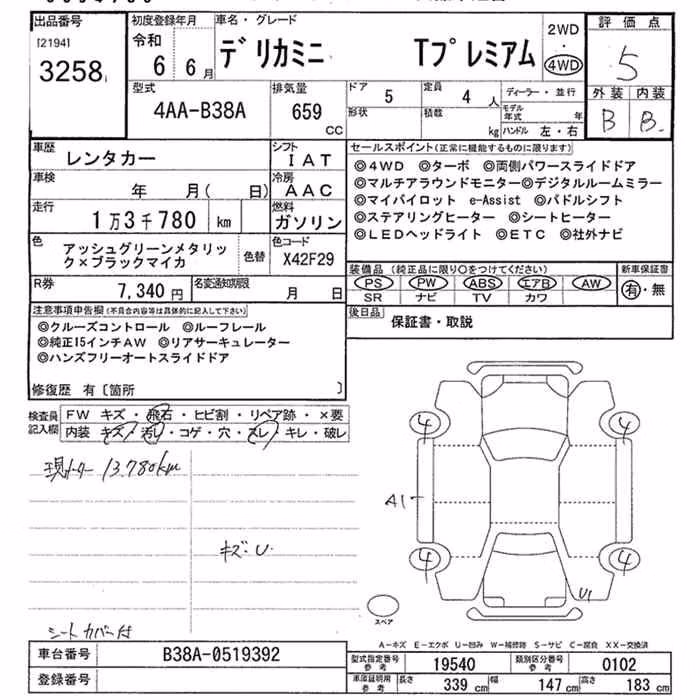 出品番号 初度登録年月 車名・グレード 2WD 評価点
[2194] 令和 デリカミニ Tプレミアム ・ 5
3258 6 6月 4WD
型式 排気量 ドア 5 定員 4人 ディーラー・並行 外装 内装
4AA-B38A 659 CC 形状 積載 kg モデル年式 年 B B
ハンドル 左・右
車歴 レンタカー シフト IAT セールスポイント(正常に機能するものに限ります)
車検 年 月( 日) 冷房 AAC ◎4WD ◎ターボ ◎両側パワースライドドア
走行 1万3千780 km 燃料 ガソリン ◎マルチアラウンドモニター◎デジタルルームミラー
◎マイパイロット e-Assist ◎パドルシフト
◎ステアリングヒーター ◎シートヒーター
◎LEDヘッドライト ◎ETC ◎社外ナビ
色 アッシュグリーンメタリック×ブラックマイカ 色替 色コード X42F29
R券 7,340円 名変通知期限 月 日
装備品(純正品に限り○をつけてください) 新車保証書
PS PW ABS エアB AW 有・無
SR ナビ TV カワ
後日品 保証書・取説
注意事項申告欄(不具合内容等は具体的に記入して下さい)
◎クルーズコントロール ◎ルーフレール
◎純正15インチAW ◎リアサーキュレーター
◎ハンズフリーオートスライドドア
修復歴 有〔箇所 〕
検査員記入欄 FW キズ・飛石・ヒビ割・リペア跡・×要
内装 キズ・汚レ・コゲ・穴・スレ・キレ・破レ
現メーター 13.780km
キズ:U
シートカバー付
4 4
A1
4 4
U1
スペア
A-キズ E-エクボ U-凹み W-補修跡 S-サビ C-腐食 XX-交換済
車台番号 B38A-0519392
登録番号
型式指定番号 参考 19540 類別区分番号 参考 0102
車庫証明用 参考 長さ 339cm 幅 147cm 高さ 183cm